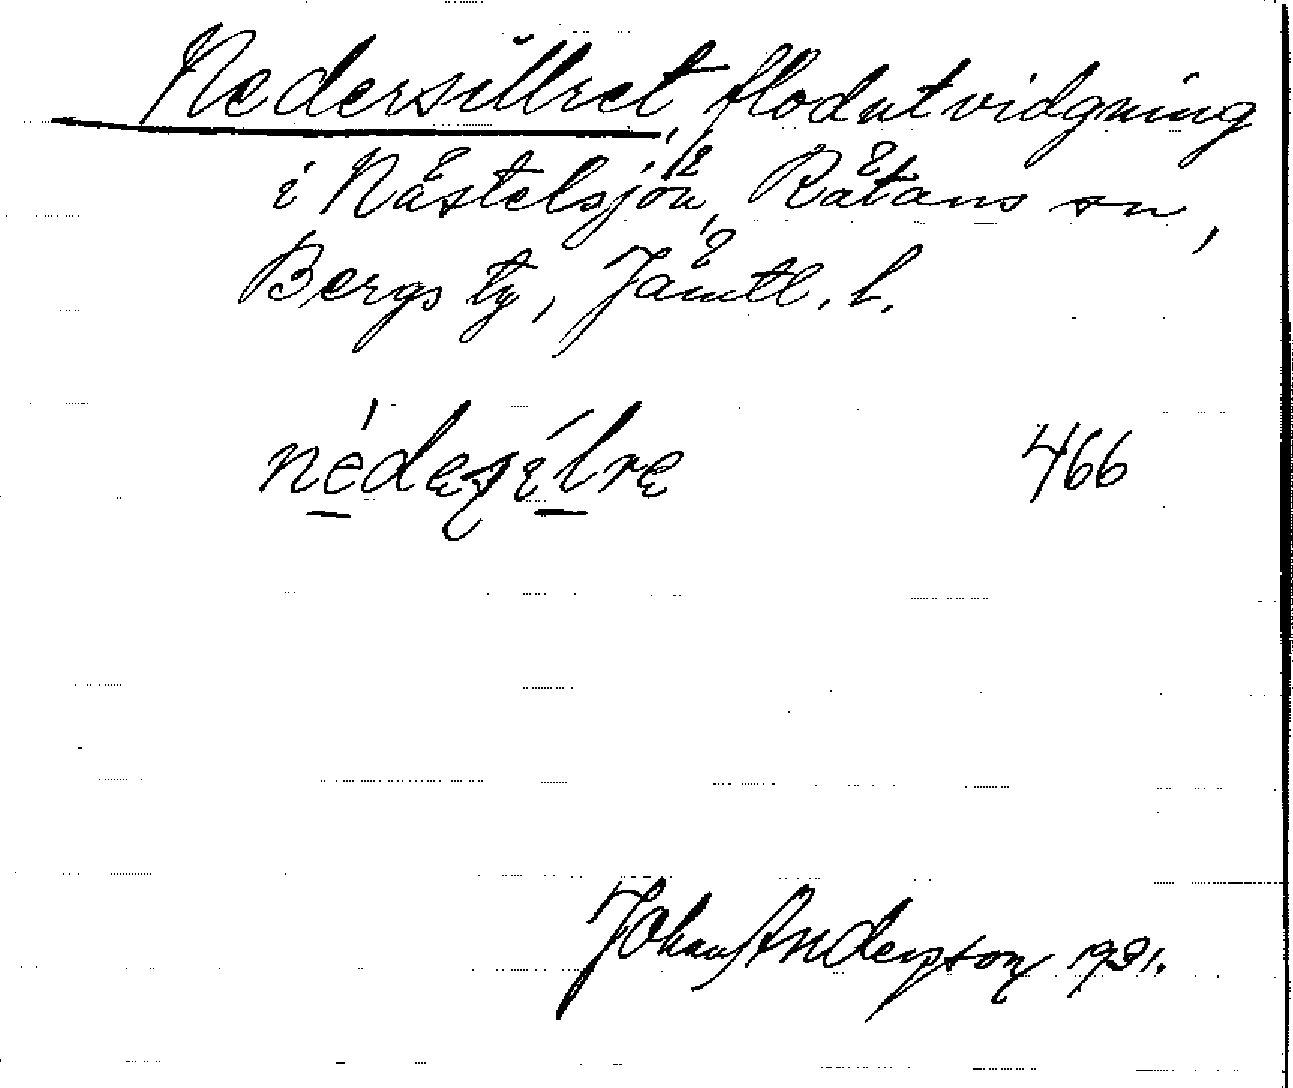 Nedersillret, flodutvidgning
i Nästelsjön, Rätans sn,
Bergs tg, Jämtl. l.
466
Johan Anderson 1931.